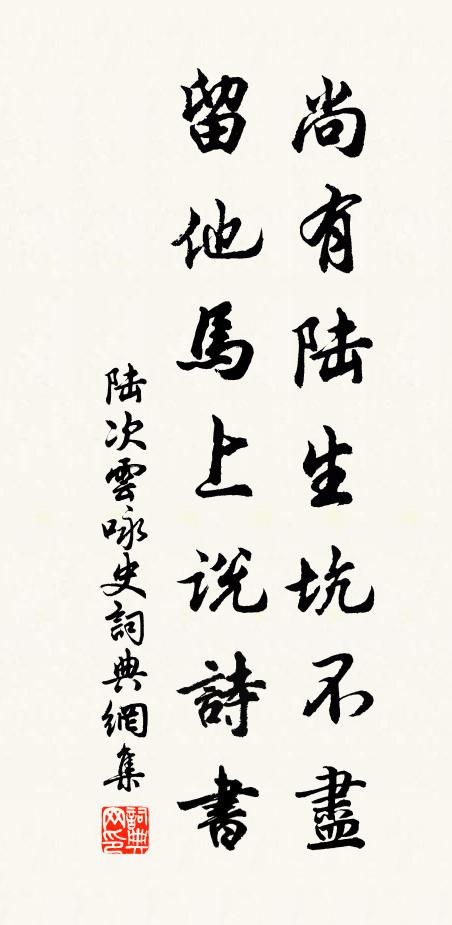 尚有陆生坑不盡
留他馬上说詩書
陆次雲咏史詞典網集
詞典网印